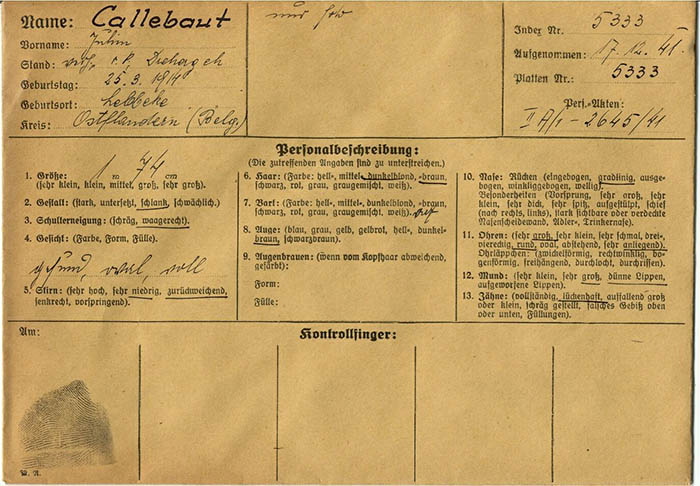 Name: Callebaut
Vorname:
Stand: verh.
Geburtstag: 25.3.1914
Geburtsort: Lebbeke
Kreis: Ostflandern (Belg.)
Index Nr. 5333
Aufgenommen: 17.12.41.
Platten Nr.: 5333
Pers.-Akten:
2645/41
Personalbeschreibung:
(Die zutreffenden Angaben sind zu unterstreichen.)
1. Größe: 1 m 74 cm
(sehr klein, klein, mittel, groß, sehr groß).
2. Gestalt: (stark, untersetzt, schlank, schwächlich).
3. Schulterneigung: (schräg, waagerecht).
4. Gesicht: (Farbe, Form, Fülle).
gesund, oval, voll
5. Stirn: (sehr hoch, sehr niedrig, zurückweichend,
senkrecht, vorspringend).
6. Haar: (Farbe: hell-, mittel-, dunkelblond, -braun,
schwarz, rot, grau, graugemischt, weiß).
7. Bart: (Farbe: hell-, mittel-, dunkelblond, -braun,
schwarz, rot, grau, graugemischt, weiß).
8. Auge: (blau, grau, gelb, gelbrot, hell-, dunkel-
braun, schwarzbraun).
9. Augenbrauen: (wenn vom Kopfhaar abweichend,
gefärbt):
Form:
Fülle:
10. Nase: Rücken (eingebogen, gradlinig, ausge-
bogen, winkliggebogen, wellig).
Besonderheiten (Vorsprung, sehr groß, sehr
klein, sehr dick, sehr spitz, aufgestülpt, schief
(nach rechts, links), stark sichtbare oder verdeckte
Nasenscheidewand, Adler-, Trinkernase).
11. Ohren: (sehr groß, klein, sehr schmal, drei-,
viereckig, rund, oval, abstehend, sehr anliegend).
Ohrläppchen: (zwickelförmig, rechtwinklig, bo-
genförmig, freihängend, durchlocht, durchrissen).
12. Mund: (sehr klein, sehr groß, dünne Lippen,
aufgeworfene Lippen).
13. Zähne: (vollständig, lückenhaft, auffallend groß
oder klein, schräg gestellt, falsches Gebiß oben
oder unten, Füllungen).
Am:
Kontrollfinger:
W. R.